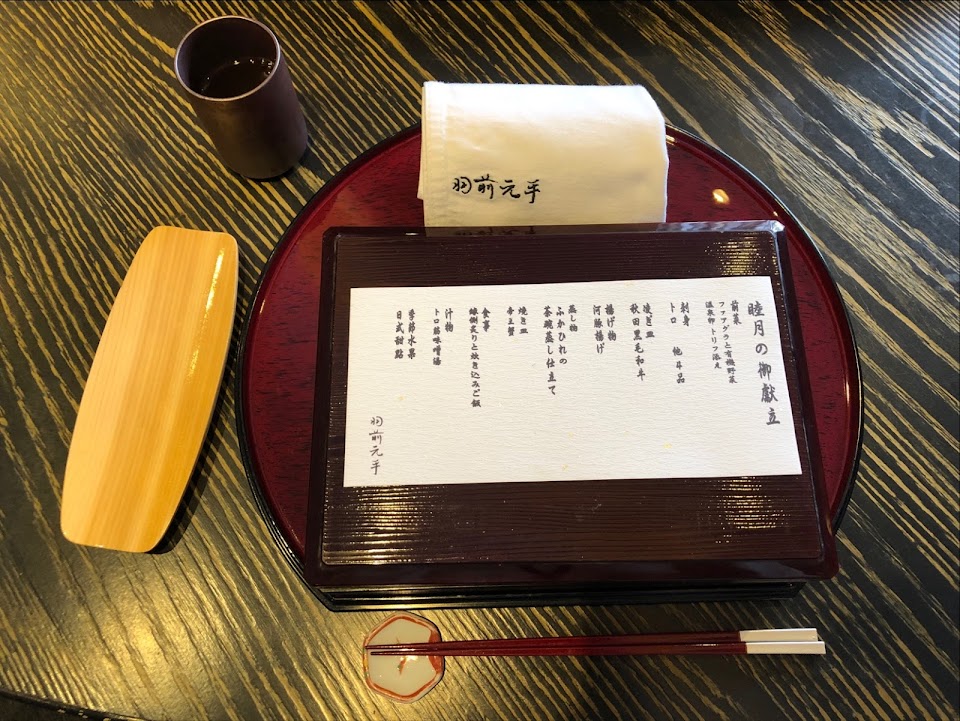 羽前元手
睦月の御献立
前菜
ファアグラと有機野菜
温泉卵 トリフ添え
刺身
トロ 他4品
凌ぎ皿
秋田黒毛和牛
揚げ物
河豚揚げ
蒸し物
ふかひれの
茶碗蒸し仕立て
焼き皿
香上蟹
食事
鰊側炙りと炊き込みご飯
汁物
トロ筋味噌湯
季節水果
日式甜點
羽前元手